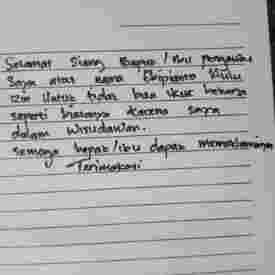 Selamat Siang Bapak / Ibu pengawas
Saya atas nama Ekipianto Kulu
izin untuk tidak bisa ikut bekerja
seperti biasanya karena saya
dalam wisudawan.
semoga bapak/ibu dapat memaklumimya
Terimakasi